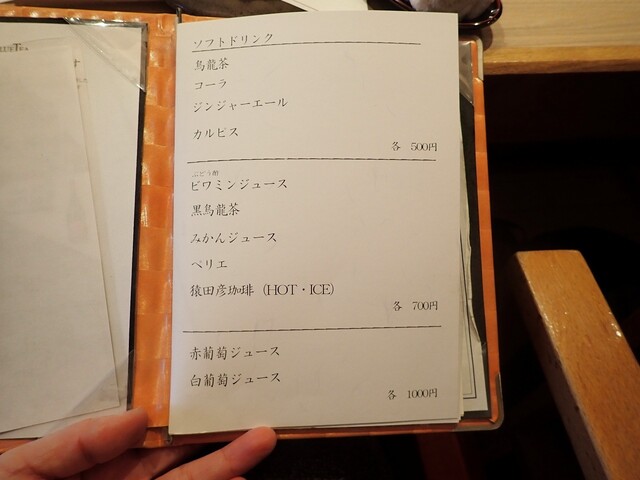 ソフトドリンク
烏龍茶
コーラ
ジンジャーエール
カルピス
各 500円
ぶどう酢
ビワミンジュース
黒烏龍茶
みかんジュース
ペリエ
猿田彦珈琲 (HOT・ICE)
各 700円
赤葡萄ジュース
白葡萄ジュース
各 1000円